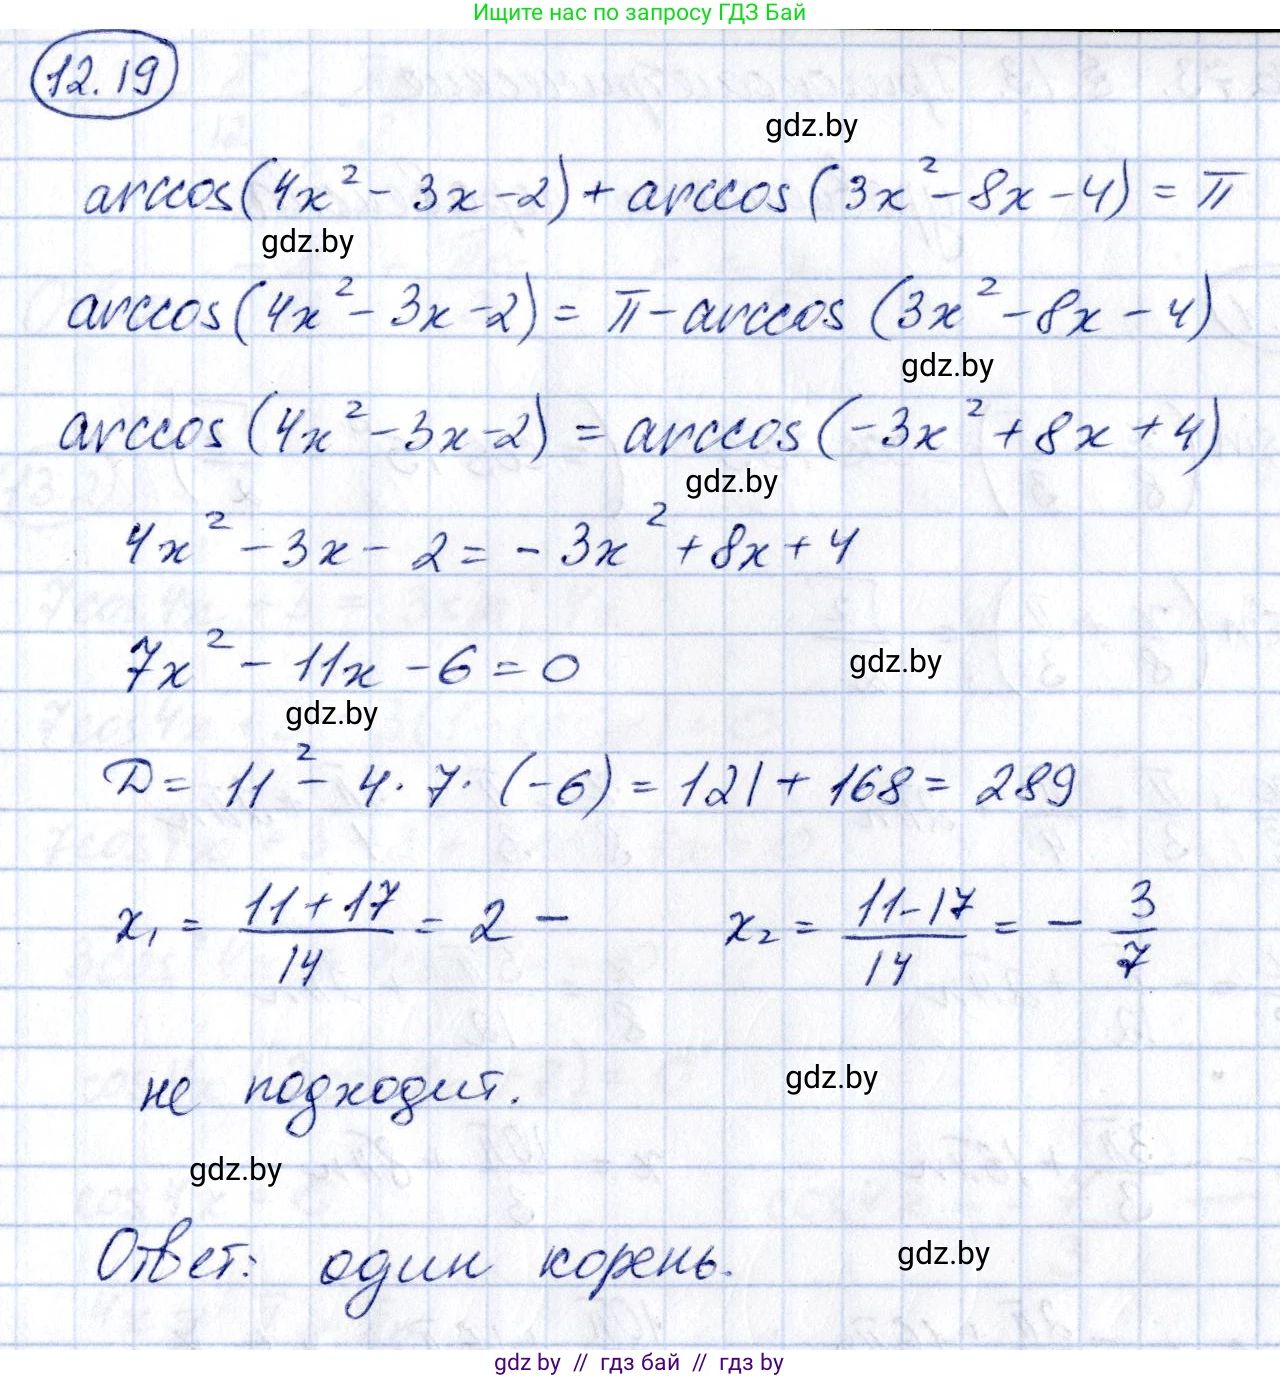 Ищите нас по запросу ГДЗ Бай
12.19
gdz.by
arccos(4x² - 3x - 2) + arccos(3x² - 8x - 4) = π
gdz.by
arccos(4x² - 3x - 2) = π - arccos(3x² - 8x - 4)
gdz.by
arccos(4x² - 3x - 2) = arccos(-3x² + 8x + 4)
gdz.by
4x² - 3x - 2 = -3x² + 8x + 4
7x² - 11x - 6 = 0
gdz.by
gdz.by
D = 11² - 4·7·(-6) = 121 + 168 = 289
x₁ = (11+17)/14 = 2 - x₂ = (11-17)/14 = -3/7
не подходит.
gdz.by
gdz.by
Ответ: один корень.
gdz.by
gdz by // гдз бай // гдз by